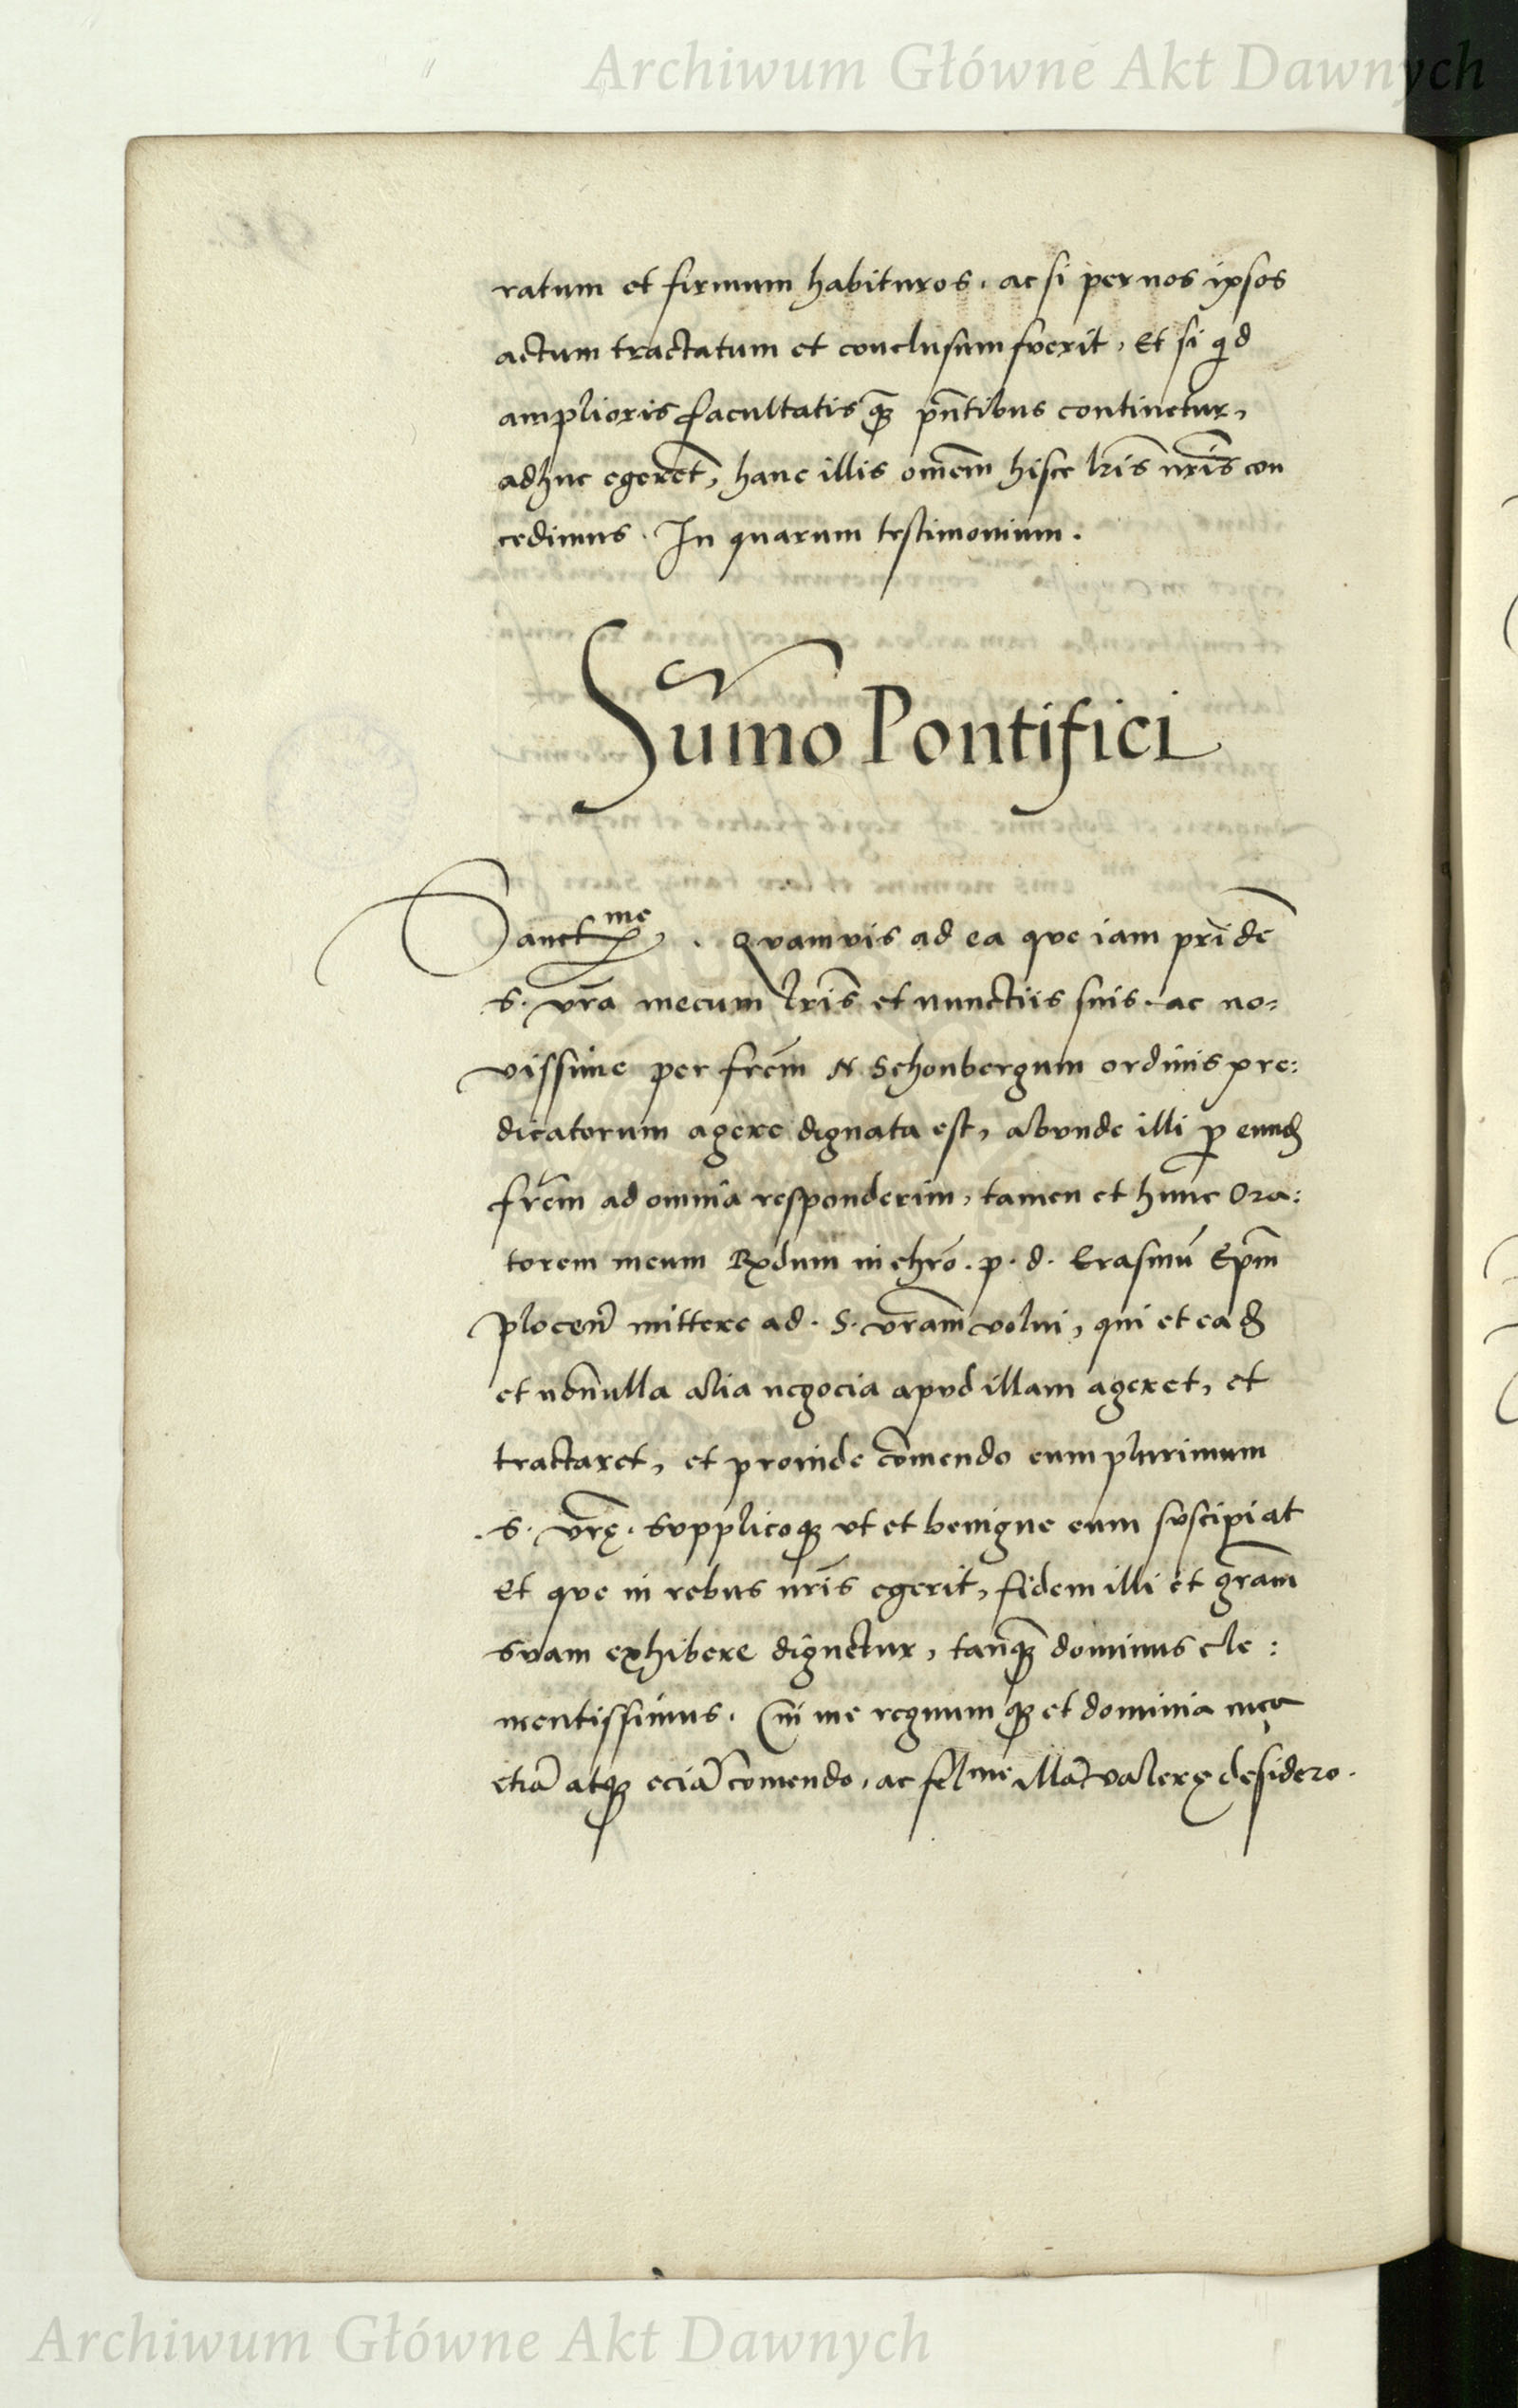 Archiwum Główne Akt Dawnych
ratum et firmum habituros, ac si per nos ipsos
actum tractatum et conclusum fuerit, Et si qid
amplioris facultatis q̃ pñtibus continetur,
adhuc egeret, hanc illis om̃em hisce lr̃is nr̃is con
cedimus. In quarum testimonium.
Sum̃o Pontifici
Sanct me. Quamvis ad ea que iam pridẽ
S. vr̃a mecum lr̃is et nunctiis suis. ac no:
vissime per frẽm N. Schonbergum ordinis pre:
dicatorum agere dignata est, abunde illi p eund
frẽm ad omnia responderim, tamen et hunc Ora:
torem meum Rdum in chrõ. p. d. Erasmũ Ep̃m
plocen̄ mittere ad. S. vr̃am volui, qui et ead
et nõnulla alia negocia apud illam ageret, et
tractaret, et proinde com̃endo eum plurimum
S. vr̃ę. supplicoq ut et benigne eum suscipiat
Et que in rebus nr̃is egerit, fidem illi et gr̃am
suam exhibere dignetur, tanq̃ dominus cle:
mentissimus. Cui me regnumq et dominia mea
etiã atq eciã com̃endo, ac fel me illã valerę desidero.
Archiwum Główne Akt Dawnych